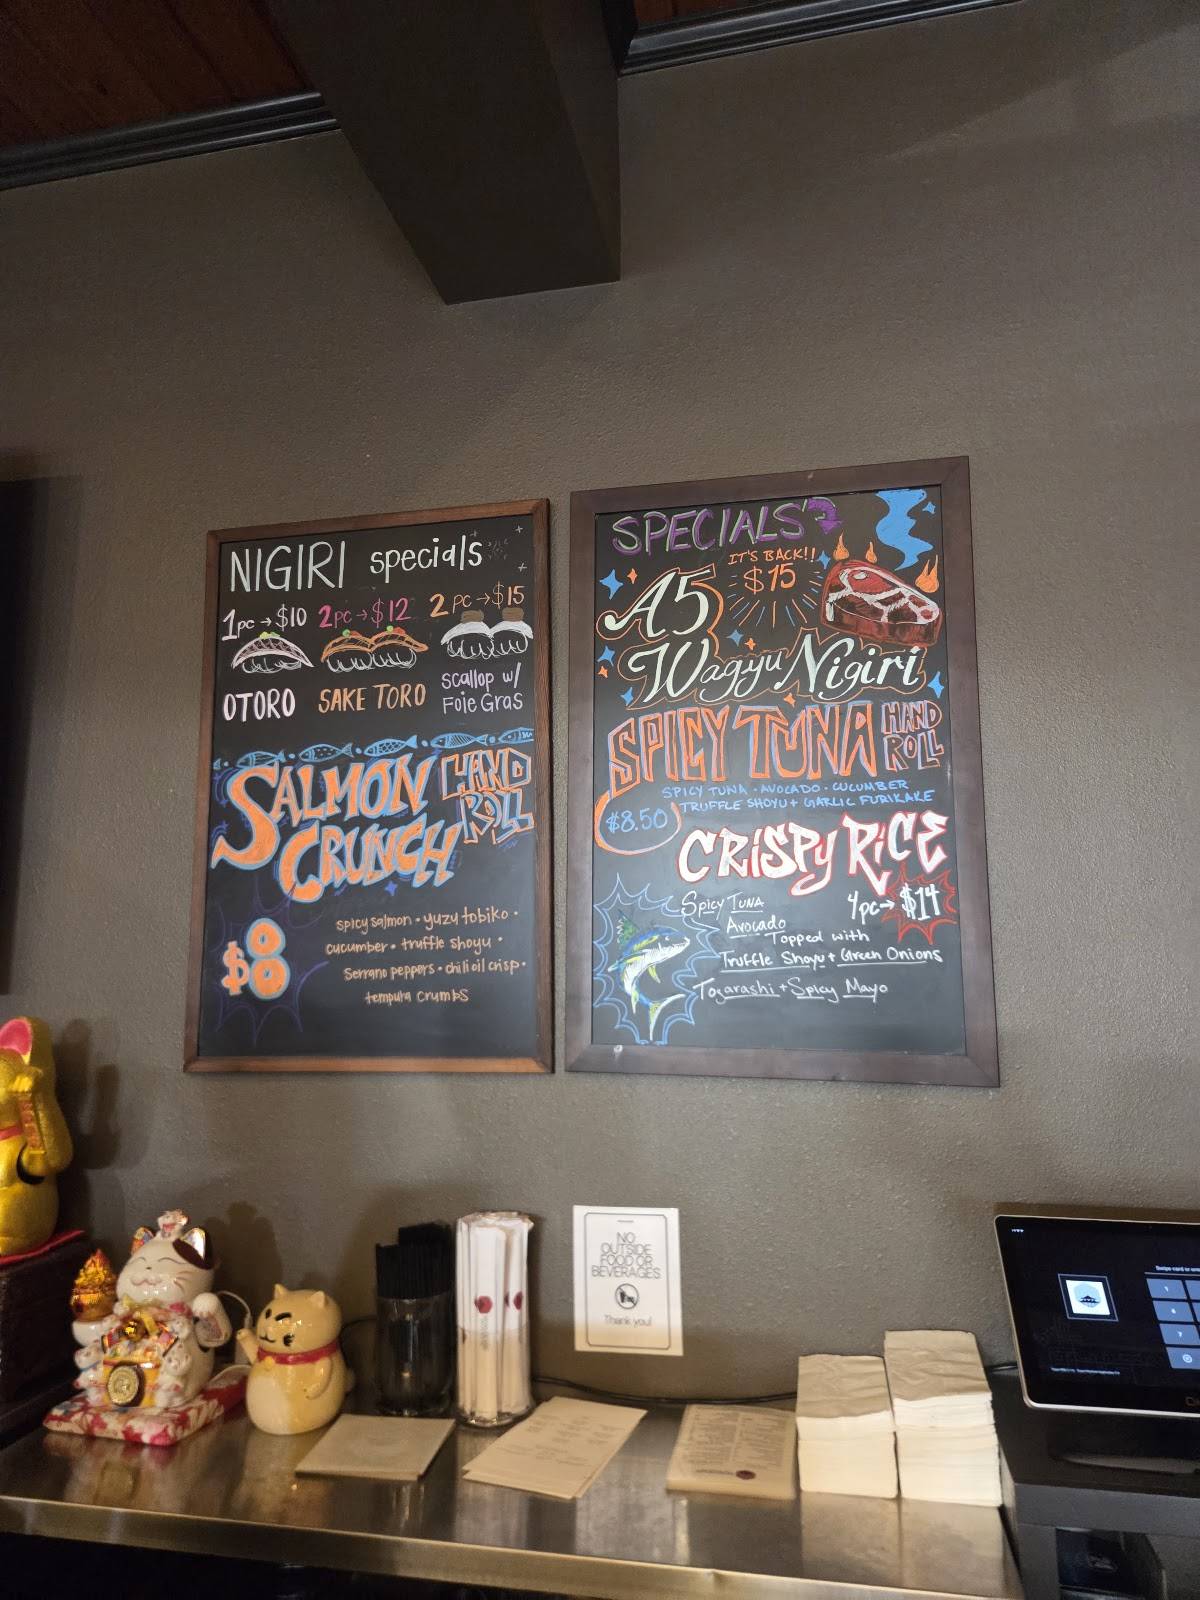 NIGIRI specials
1pc → $10 2pc → $12 2 pc → $15
OTORO SAKE TORO scallop w/
Foie Gras
SALMON HAND
CRUNCH ROLL
$8
spicy salmon • yuzu tobiko •
cucumber • truffle shoyu •
Serrano peppers • chili oil crisp •
tempura crumbs
SPECIALS
IT'S BACK!!
A5 $15
Wagyu Nigiri
SPICY TUNA HAND
ROLL
SPICY TUNA • AVOCADO • CUCUMBER
TRUFFLE SHOYU + GARLIC FURIKAKE
$8.50
CRiSPy RiCE
4pc → $14
Spicy TUNA
Avocado
Topped with
Truffle Shoyu + Green Onions
Togarashi + Spicy Mayo
NO
OUTSIDE
FOOD OR
BEVERAGES
Thank you!